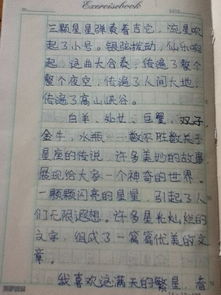 Exercisebook
三颗星星弹奏着吉它,流星吹
起了小号。银弦拨动,仙乐响
起,这曲大合奏,传遍了整个
整个夜空,传遍了人间大地,
传遍了高山峡谷。
白羊、仙女、巨蟹、双子
金牛、水瓶,一数不胜数关于
星座的传说,许多美妙的故事
展现给大家一个神奇的世界。
一颗颗闪亮的星星,引起了人
们无限遐想。许多星长灿烂的
文字,组成了一篇篇优美的文
章。
我喜欢这满天的繁星,看